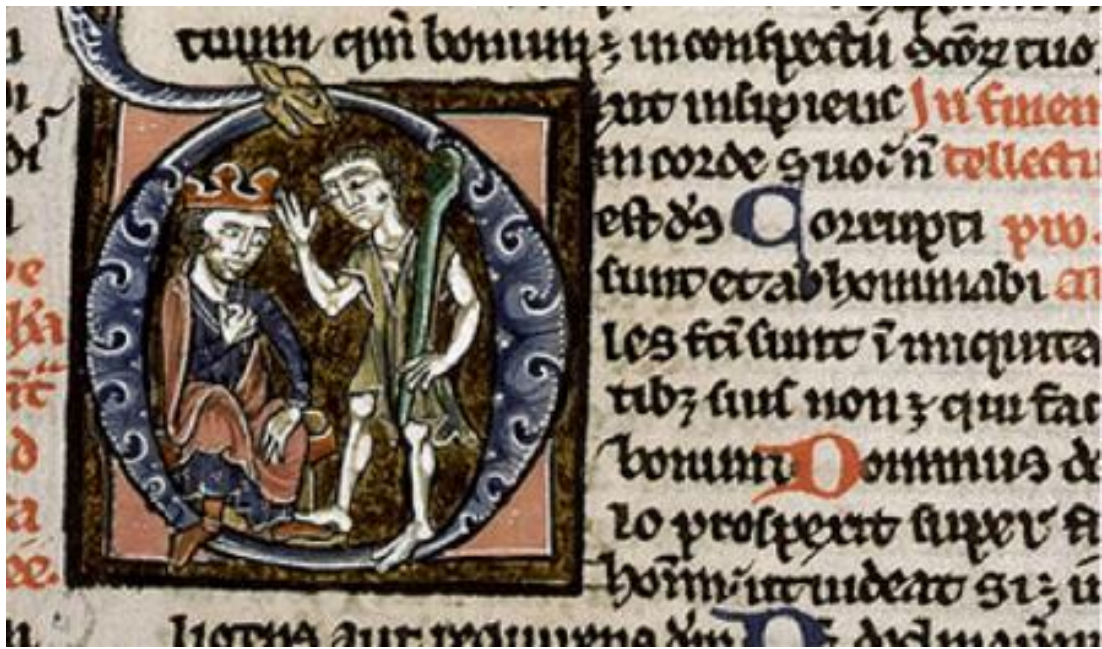 tuum qm̄ bonum ; in conspectu sc̄oꝝ tuo
xit insipiens In finem
in corde suo n̄ tellectu
est ds̄ Corrupti pro.
sunt et abhominabi
les fc̄i sunt ī iniquita
tibꝫ suis non ꝫ qui fac
bonum Dominus de
lo prosperit super fi
hom̄m ut uideat si ꝫ
ligens aut requirens dm̄